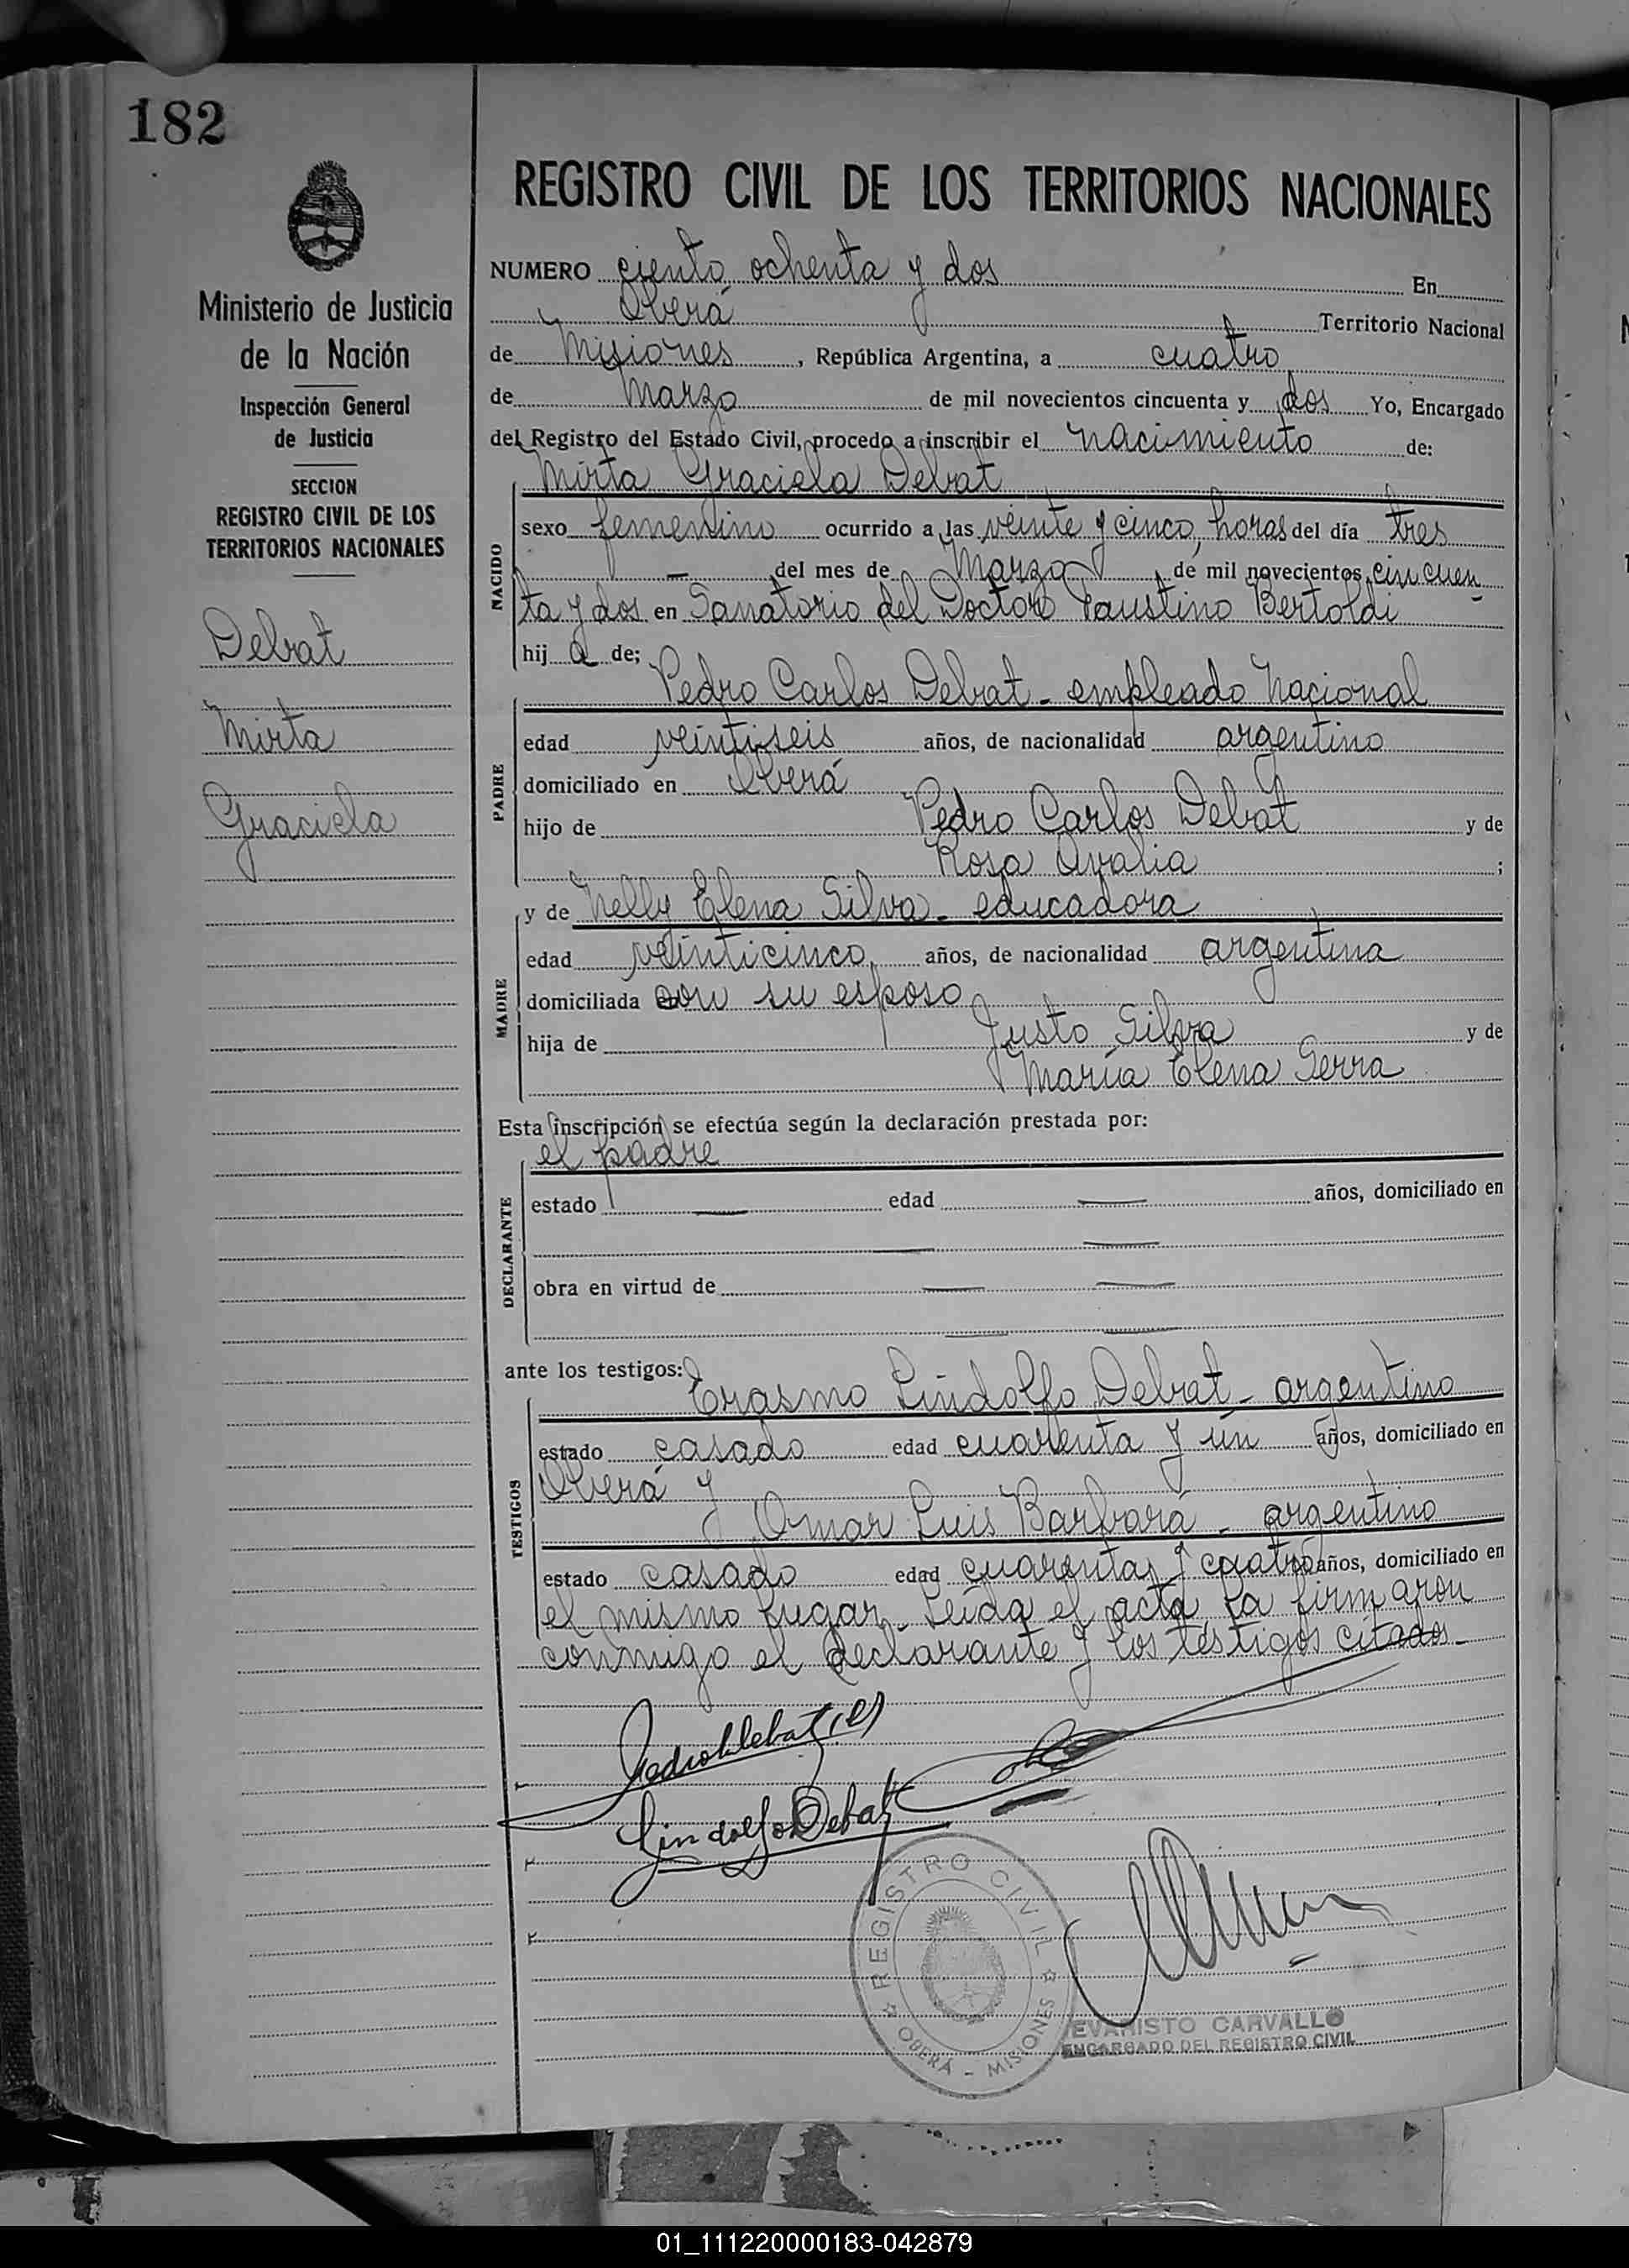 182
Ministerio de Justicia
de la Nación
Inspección General
de Justicia
SECCION
REGISTRO CIVIL DE LOS
TERRITORIOS NACIONALES
Debat
Mirta
Graciela
REGISTRO CIVIL DE LOS TERRITORIOS NACIONALES
NUMERO ciento ochenta y dos En
Oberá Territorio Nacional
de Misiones, República Argentina, a cuatro
de Marzo de mil novecientos cincuenta y dos Yo, Encargado
del Registro del Estado Civil, procedo a inscribir el nacimiento de:
Mirta Graciela Debat
NACIDO
sexo femenino ocurrido a las veinte y cinco horas del día tres
— del mes de Marzo de mil novecientos cincuen
ta y dos en Sanatorio del Doctor Faustino Bertoldi
hij a de;
Pedro Carlos Debat - empleado Nacional
PADRE
edad veintiseis años, de nacionalidad argentino
domiciliado en Oberá
hijo de Pedro Carlos Debat y de
Rosa Avalia ;
y de Nelly Elena Silva - educadora
MADRE
edad veinticinco años, de nacionalidad argentina
domiciliada con su esposo
hija de Justo Silva y de
María Elena Serra
Esta inscripción se efectúa según la declaración prestada por:
el padre
DECLARANTE
estado — edad — años, domiciliado en
— —
obra en virtud de — —
— —
ante los testigos:
Erasmo Lindolfo Debat - argentino
TESTIGOS
estado casado edad cuarenta y un años, domiciliado en
Oberá y
Omar Luis Barbará - argentino
estado casado edad cuarenta y cuatro años, domiciliado en
el mismo lugar. Leída el acta la firmaron
conmigo el declarante y los testigos citados.-
Lindolfo Debat
REGISTRO CIVIL
OBERÁ - MISIONES
EVARISTO CARVALLO
ENCARGADO DEL REGISTRO CIVIL
01_111220000183-042879